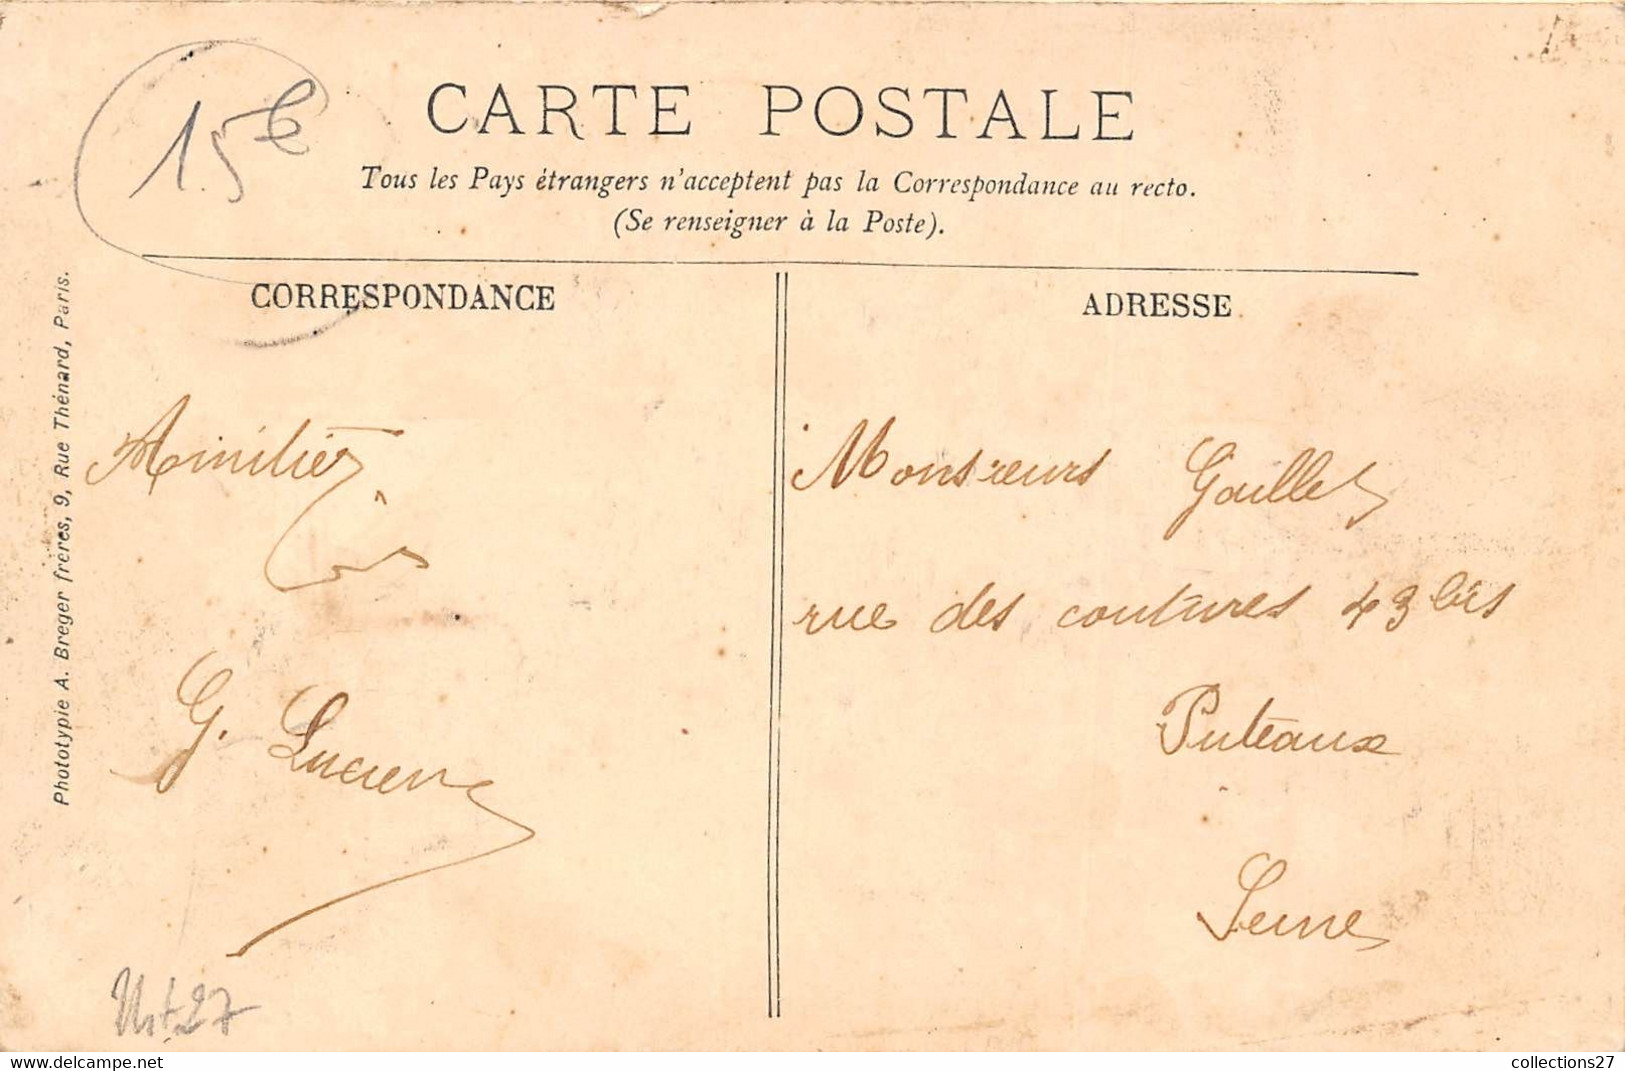 15€
CARTE POSTALE
Tous les Pays étrangers n'acceptent pas la Correspondance au recto.
(Se renseigner à la Poste).
CORRESPONDANCE
Amitiés
G. Lucien
ADRESSE
Monsieurs Gaillet
rue des coutures 43 bis
Puteaux
Seine
Phototypie A. Breger frères, 9, Rue Thénard, Paris.
delcampe.net
collections27